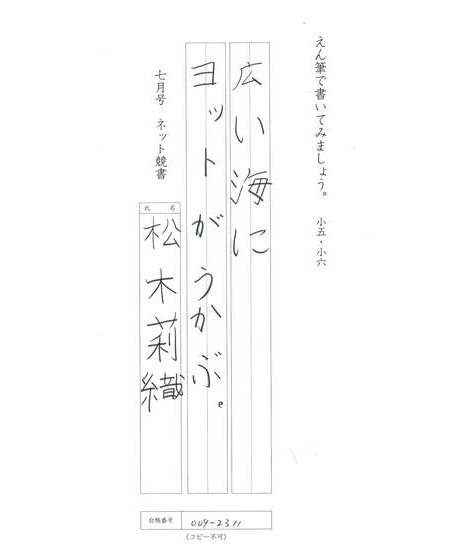 えん筆で書いてみましょう。 小五・小六
広い海に
ヨットがうかぶ。
七月号 ネット競書
氏名
松木莉織
台帳番号 009-2311
(コピー不可)